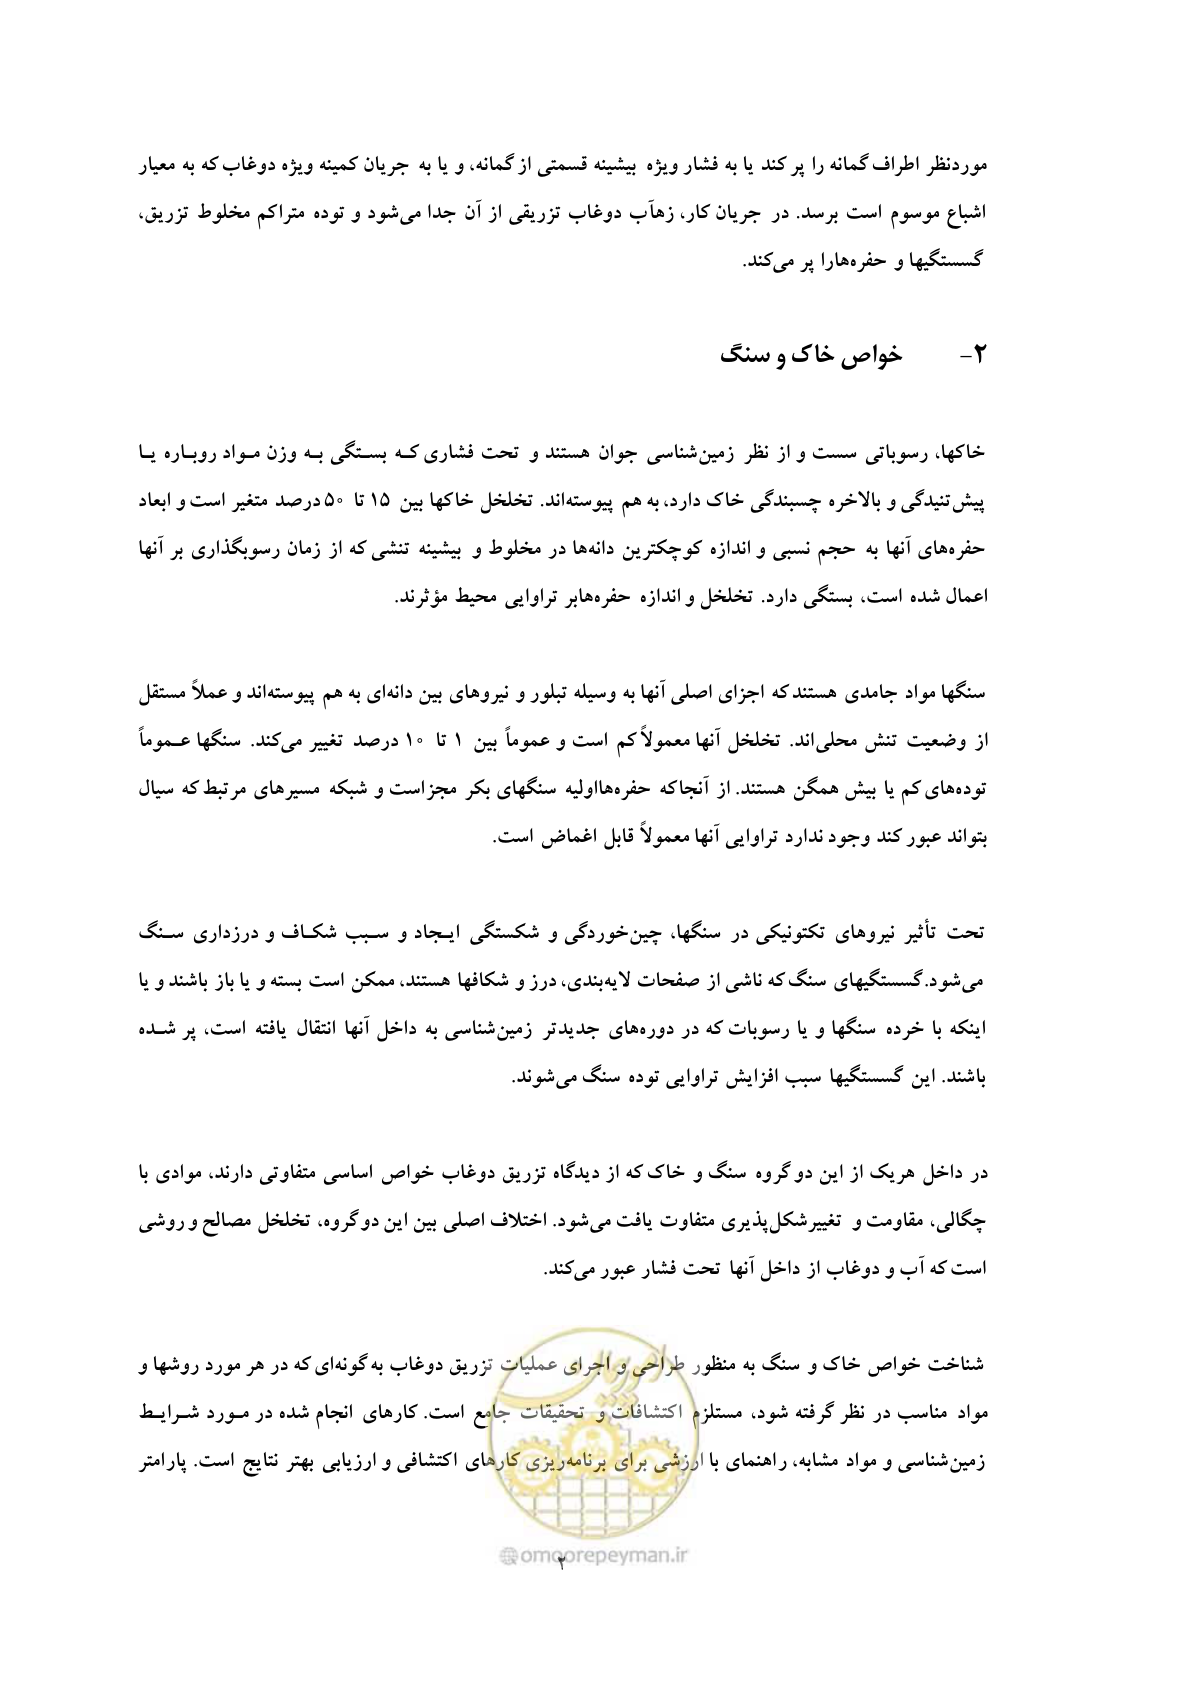 موردنظر اطراف گمانه را پر کند یا به فشار ویژه بیشینه قسمتی از گمانه، و یا به جریان کمینه ویژه دوغاب که به معیار
اشباع موسوم است برسد. در جریان کار، زهآب دوغاب تزریقی از آن جدا می‌شود و توده متراکم مخلوط تزریق،
گسستگیها و حفره‌هارا پر می‌کند.
۲- خواص خاک و سنگ
خاکها، رسوباتی سست و از نظر زمین‌شناسی جوان هستند و تحت فشاری کـه بسـتگی بـه وزن مـواد روبـاره یـا
پیش‌تنیدگی و بالاخره چسبندگی خاک دارد، به هم پیوسته‌اند. تخلخل خاکها بین ۱۵ تا ۵۰ درصد متغیر است و ابعاد
حفره‌های آنها به حجم نسبی و اندازه کوچکترین دانه‌ها در مخلوط و بیشینه تنشی که از زمان رسوبگذاری بر آنها
اعمال شده است، بستگی دارد. تخلخل و اندازه حفره‌هابر تراوایی محیط مؤثرند.
سنگها مواد جامدی هستند که اجزای اصلی آنها به وسیله تبلور و نیروهای بین دانه‌ای به هم پیوسته‌اند و عملاً مستقل
از وضعیت تنش محلی‌اند. تخلخل آنها معمولاً کم است و عموماً بین ۱ تا ۱۰ درصد تغییر می‌کند. سنگها عـموماً
توده‌های کم یا بیش همگن هستند. از آنجاکه حفره‌هااولیه سنگهای بکر مجزاست و شبکه مسیرهای مرتبط که سیال
بتواند عبور کند وجود ندارد تراوایی آنها معمولاً قابل اغماض است.
تحت تأثیر نیروهای تکتونیکی در سنگها، چین‌خوردگی و شکستگی ایـجاد و سـبب شکـاف و درزداری سـنگ
می‌شود.گسستگیهای سنگ که ناشی از صفحات لایه‌بندی، درز و شکافها هستند، ممکن است بسته و یا باز باشند و یا
اینکه با خرده سنگها و یا رسوبات که در دوره‌های جدیدتر زمین‌شناسی به داخل آنها انتقال یافته است، پر شـده
باشند. این گسستگیها سبب افزایش تراوایی توده سنگ می‌شوند.
در داخل هریک از این دو گروه سنگ و خاک که از دیدگاه تزریق دوغاب خواص اساسی متفاوتی دارند، موادی با
چگالی، مقاومت و تغییرشکل‌پذیری متفاوت یافت می‌شود. اختلاف اصلی بین این دوگروه، تخلخل مصالح و روشی
است که آب و دوغاب از داخل آنها تحت فشار عبور می‌کند.
شناخت خواص خاک و سنگ به منظور طراحی و اجرای عملیات تزریق دوغاب به‌گونه‌ای که در هر مورد روشها و
مواد مناسب در نظر گرفته شود، مستلزم اکتشافات و تحقیقات جامع است. کارهای انجام شده در مـورد شـرایـط
زمین‌شناسی و مواد مشابه، راهنمای با ارزشی برای برنامه‌ریزی کارهای اکتشافی و ارزیابی بهتر نتایج است. پارامتر
امور پیمان
@omoorepeyman.ir
۲